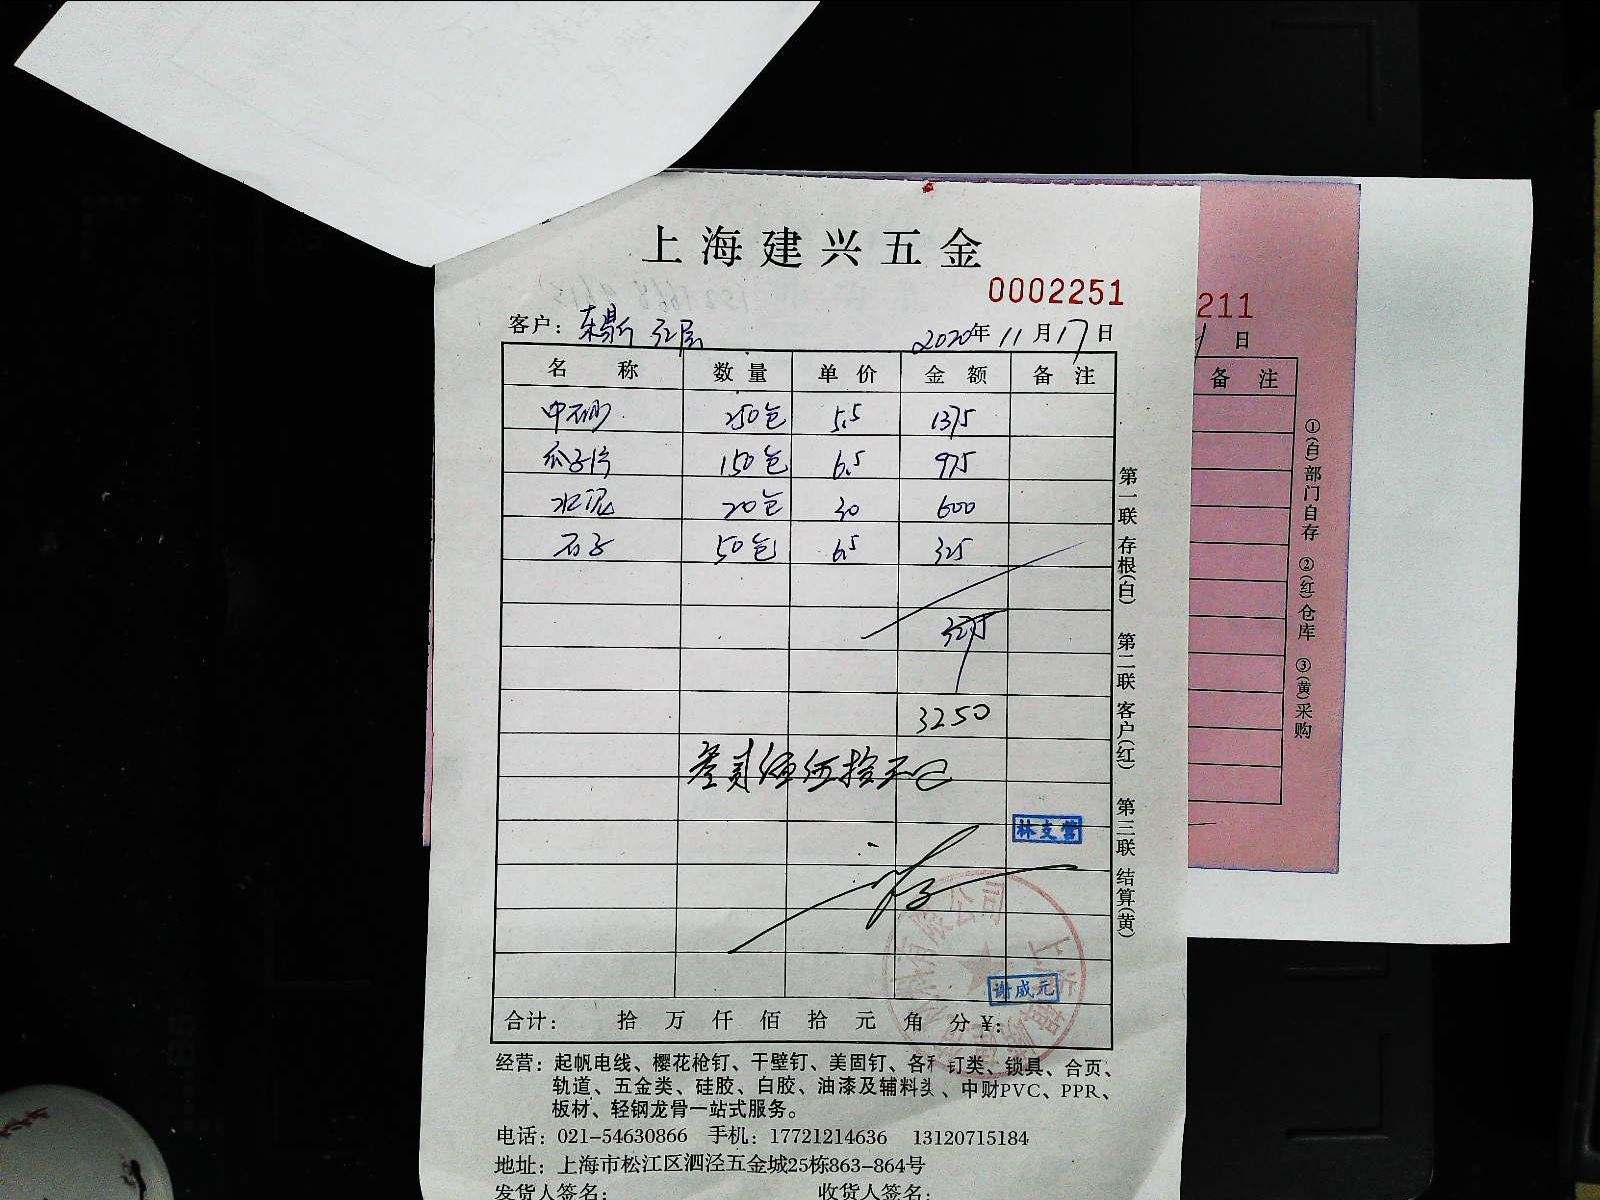 上海建兴五金
0002251
客户：
2020年11月17日
名称 数量 单价 金额 备注
中石沙 250包 5.5 1375
瓜子片 150包 6.5 975
水泥 20包 30 600
石子 50包 6.5 325
3250
林支营
谢成元
合计： 拾 万 仟 佰 拾 元 角 分 ￥:
经营：起帆电线、樱花枪钉、干壁钉、美固钉、各种钉类、锁具、合页、
轨道、五金类、硅胶、白胶、油漆及辅料类、中财PVC、PPR、
板材、轻钢龙骨一站式服务。
电话：021-54630866 手机：17721214636 13120715184
地址：上海市松江区泗泾五金城25栋863-864号
发货人签名： 收货人签名：
第一联 存根(白) 第二联 客户(红) 第三联 结算(黄)
211
日
备注
①(白)部门自存 ②(红)仓库 ③(黄)采购